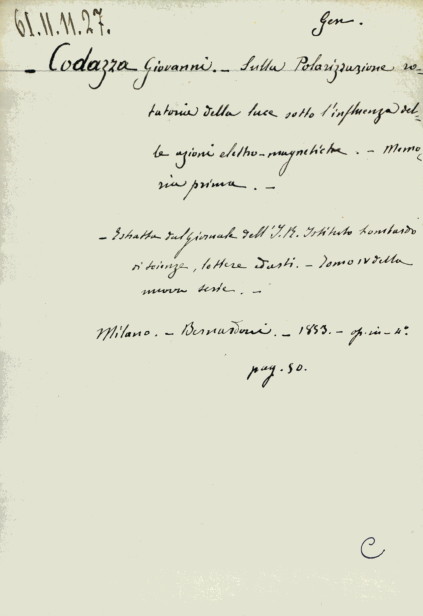 61.II.11.27.
Gen.
- Codazza Giovanni. - Sulla Polarizzazione ro-
tatoria della luce sotto l'influenza del-
le azioni elettro-magnetiche. - Memo-
ria prima. -
- Estratta dal Giornale dell'I. R. Istituto Lombardo
di scienze, lettere ed arti. - Tomo IV della
nuova serie. -
Milano. - Bernardoni. - 1853. - op. in-4°.
pag. 50.
C